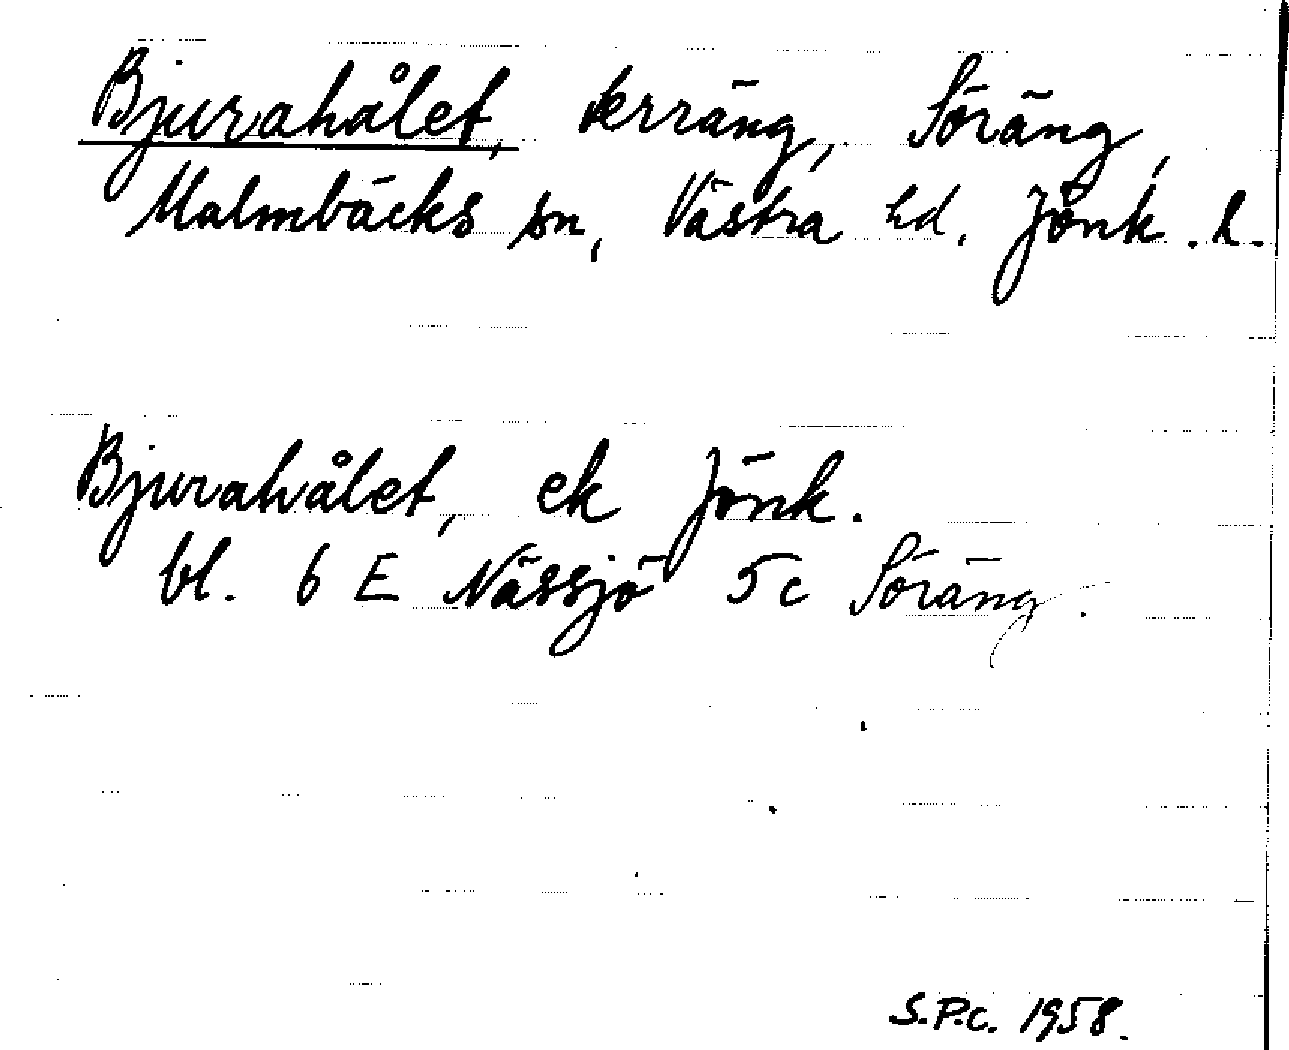 Bjurahålet, terräng, Söräng,
Malmbäcks sn, Västra hd. Jönk. l.
Bjurahålet, ek Jönk.
bl. 6 E Nässjö 5c Söräng.
S.P.c. 1958.